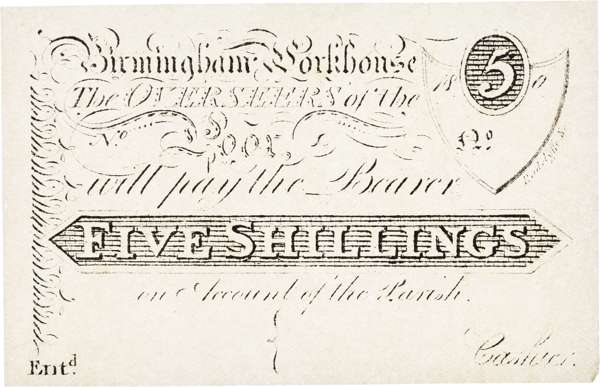 Birmingham Workhouse
18 5 0
The OVERSEERS of the
No. Poor, No.
will pay the Bearer
FIVE SHILLINGS
on Account of the Parish.
Ent.d Cashier.